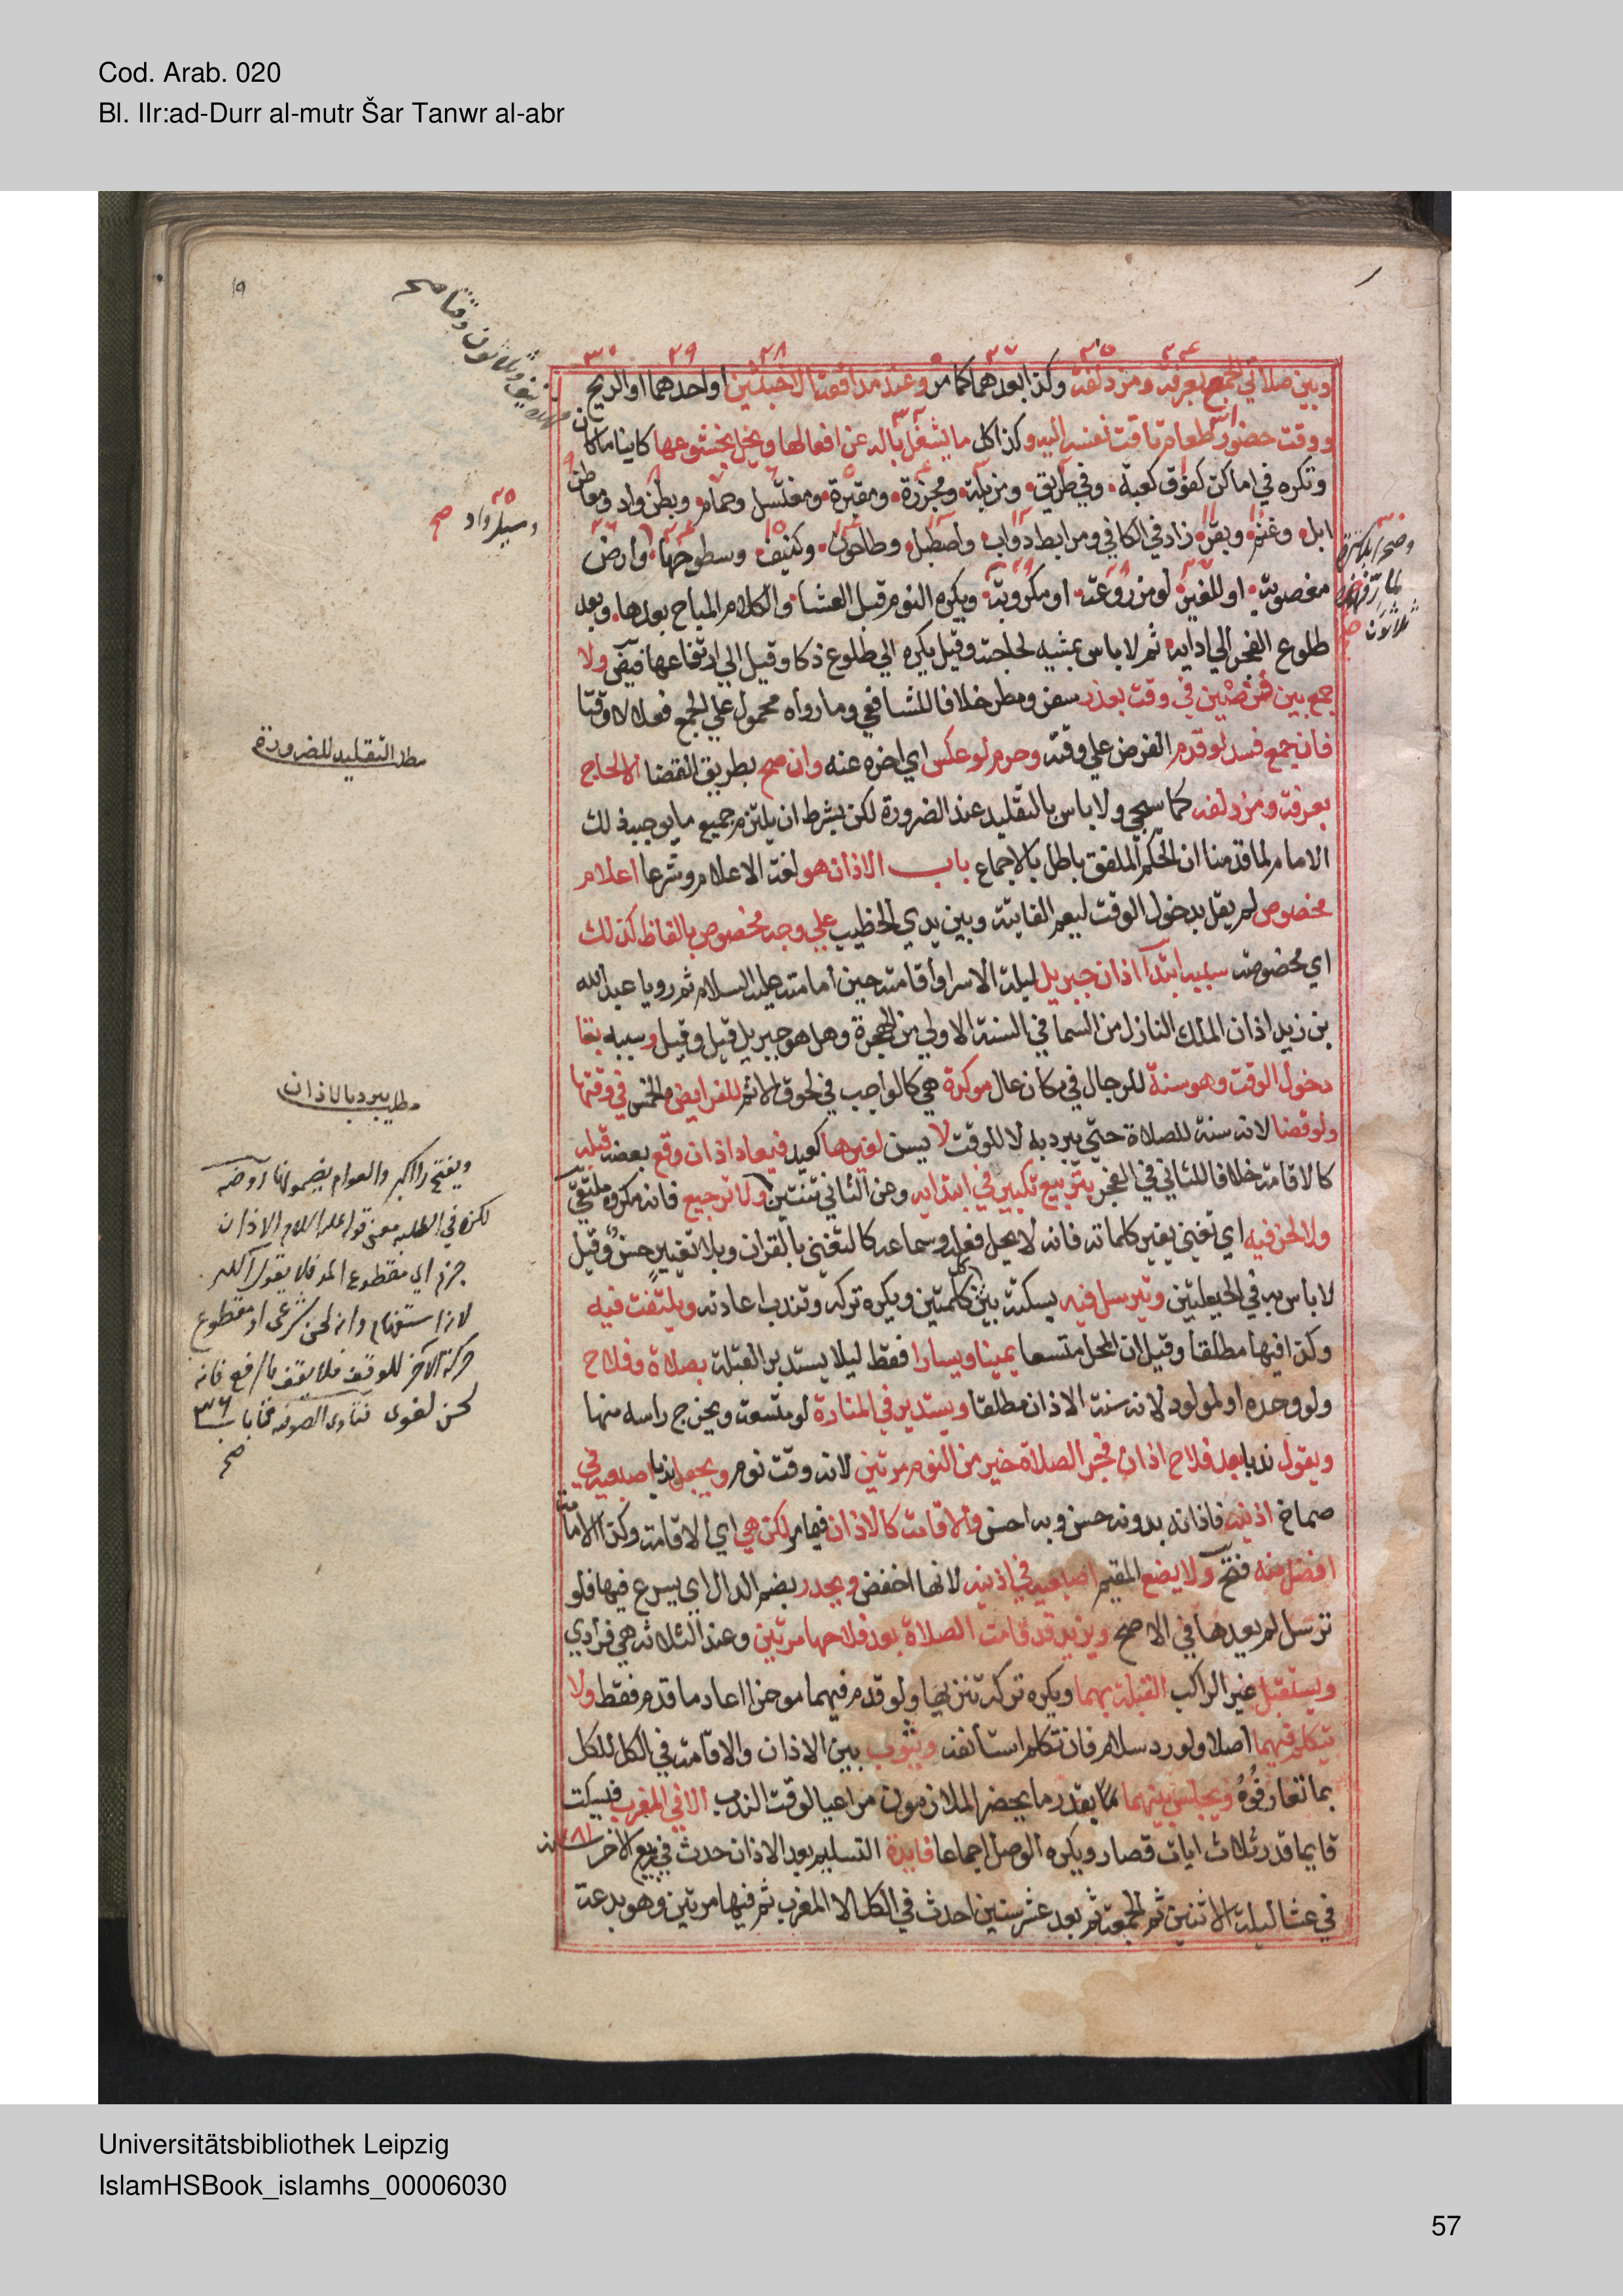 Cod. Arab. 020
Bl. IIr:ad-Durr al-mutr Šar Tanwr al-abr
وبين صلاتي الجمع بعرفة ومزدلفة وكذا بعدهما كما مر وعند مدافعة الاخبثين او احدهما او الريح
ووقت حضور طعام تاقت نفسه اليه وكذا كل ما يشغل باله عن افعالها ويخل بخشوعها كاينا ما كان
وتكره في اماكن كفوق كعبة وفي طريق ومزبلة ومجزرة ومقبرة ومغتسل وحمام وبطن واد ومعاطن
ابل وغنم وبقر زاد في الكافي ومرابط دواب واصطبل وطاحون وكنيف وسطوحها وارض
مغصوبة او للغير لو مزروعة او مكروبة ويكره النوم قبل العشا والكلام المباح بعدها وبعد
طلوع الفجر الي ادايه ثم لا باس بمشيه لحاجته وقيل يكره الي طلوع ذكا وقيل الي ارتفاعها فيض ولا
جمع بين فرضين في وقت بعذر سفر ومطر خلافا للشافعي وما رواه محمول علي الجمع فعلا لا وقتا
فان جمع فسد لو قدم الفرض علي وقته وحرم لو عكس اي اخره عنه وان صح بطريق القضا الا لحاج
بعرفة ومزدلفه كما سيجي ولا باس بالتقليد عند الضرورة لكن بشرط ان يلتزم جميع ما يوجبه ذلك
الامام لما قدمنا ان الحكم الملفق باطل بالاجماع باب الاذان هو لغة الاعلام وشرعا اعلام
مخصوص لم يقل بدخول الوقت ليعم الفايتة وبين يدي الخطيب علي وجه مخصوص بالفاظ كذلك
اي مخصوصة سببه ابتدا اذان جبريل ليلة الاسرا واقامته حين امامته عليه السلام ثم رويا عبد الله
بن زيد اذان الملك النازل من السما في السنة الاولي من الهجرة وهل هو جبريل قيل وقيل وسببه بقا
دخول الوقت وهو سنة للرجال في مكان عال موكدة هي كالواجب في لحوق الاثم للفرايض الخمس في وقتها
ولو قضا لانه سنة للصلاة حتي يبرد به لا للوقت لا يسن لغيرها كعيد فيعاد اذان وقع بعضه قبله
كالاقامة خلافا للثاني في الفجر بتربيع تكبير في ابتدايه وعن الثاني ثنتين ولا ترجيع فانه مكروه ملتقي
ولا لحن فيه اي تغني يغير كلماته فانه لا يحل فعله وسماعه كالتغني بالقران وبلا تغيير حسن وقيل
لا باس به في الحيعلتين ويترسل فيه بسكتة بين كل كلمتين ويكره تركه وتندب اعادته ويلتفت فيه
وكذا فيها مطلقا وقيل ان المحل متسعا يمينا ويسارا فقط ليلا يستدبر القبلة بصلاة وفلاح
ولو وحده او لمولود لانه سنة الاذان مطلقا ويستدير في المنارة لو متسعة ويخرج راسه منها
ويقول ندبا بعد فلاح اذان فجر الصلاة خير من النوم مرتين لانه وقت نوم ويجعل ندبا اصبعيه في
صماخ اذنيه فاذانه بدونه حسن وبه احسن والاقامة كالاذان فيما مر لكن هي اي الاقامة وكذا الامامة
افضل منه فتح ولا يضع المقيم اصبعيه في اذنيه لانها اخفض ويحدر بضم الدال اي يسرع فيها فلو
ترسل لم يعدها في الاصح ويزيد قد قامت الصلاة بعد فلاحها مرتين وعند الثلاثة هي فرادي
ويستقبل غير الراكب القبلة بهما ويكره تركه تنزيها ولو قدم فيهما موخرا اعاد ما قدم فقط ولا
يتكلم فيهما اصلا ولو رد سلام فان تكلم استانفه ويثوب بين الاذان والاقامة في الكل للكل
بما تعارفوه ويجلس بينهما بقدر ما يحضر الملازمون مراعيا لوقت الندب الا في المغرب فيسكت
قايما قدر ثلاث ايات قصار ويكره الوصل اجماعا فايدة التسليم بعد الاذان حدث في ربيع الاخر سنة ٧٨١
في عشا ليلة الاثنين ثم الجمعة ثم بعد عشر سنين احدث في الكل الا المغرب ثم فيها مرتين وهو بدعة
وسيل واد صح
مطلب التقليد للضرورة
مطلب يبرد بالاذان
ويفتح را اكبر والعوام يضمونها روضه
لكن في الطلبه معني قوله عليه السلام الاذان
جزم اي مقطوع المد فلا يقول آلله اكبر
لانه استفهام وانه لحن شرعي او مقطوع
حركة الاخر للوقف فلا يقف بالرفع فانه
لحن لغوي فتاوى الصوفيه باب ٣٦
صح
Universitätsbibliothek Leipzig
IslamHSBook_islamhs_00006030
57